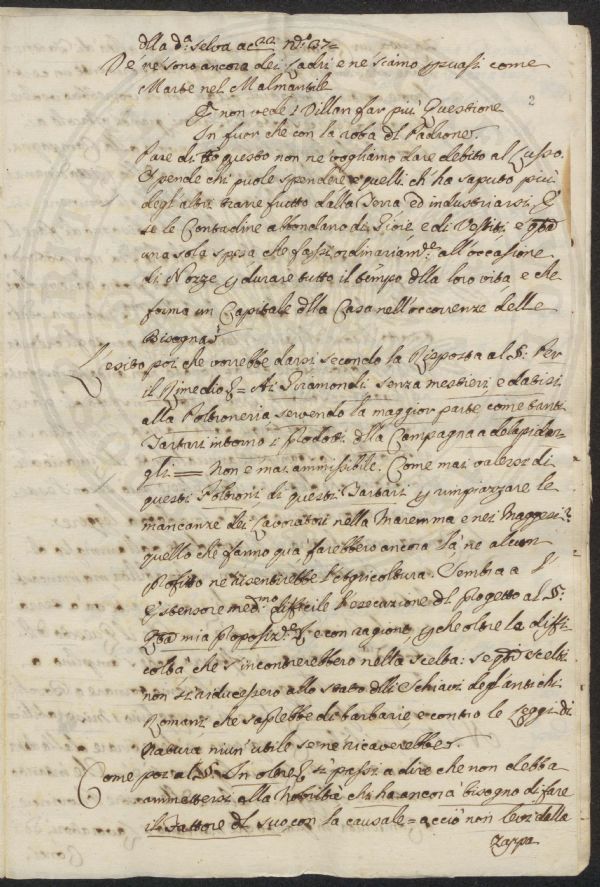 dlla d.ª selva a c 22 n.º 37=
Ve ne sono ancora dei Ladri e ne siamo quasi come
Marte nel Malmantile
E non vede i Villan far più Questione
In fuor che con la roba dl Padrone.
2
Pare di tto questo non ne vogliamo dare debito al Lusso.
Spende chi puole spendere e quelli ch' ha saputo più
degl'altri trarre frutto dalla Terra ed industriarsi. E
se le Contadine abbondano di Gioie, e di Vestiti, e qta
una sola spesa che fassi ordinariam.e all'occasione
di Nozze p durare tutto il tempo dlla loro vita, e che
forma un Capitale dlla Casa nell'occorrenze delle
Bisogna.
L'esito poi che vorrebbe darsi secondo la Risposta al §. Per
il Rimedio = Ai Giramondi senza mestieri, e datisi
alla Poltroneria, servendo la maggior parte, come tanti
Tartari intorno i Prodotti dlla Campagna a dilapidar-
gli = Non è mai ammissibile. Come mai valersi di
questi Poltroni di questi Tartari p rimpiazzare le
mancanze dei Lavoratori nella Maremma e nei Maggesi?
quello che fanno quà farebbero ancora là, ne alcun
Profitto ne risentirebbe l'Agricoltura. Sembra a l'
Estensore med.mo difficile l'esecuzione dl progetto al §.
Qta mia proposiz.e e con ragione, p che oltre la diffi-
coltà che s'incontrerebbero nella scelta: se qti scelti
non si riducessero allo stato dlli Schiavi degl'antichi
Romani che sarebbe di barbarie e contro le Leggi di
Natura niun' utile se ne ricaverebbe.
Come poi al §. In oltre si passi a dire che non debba
ammettersi alla Nobiltà chi ha ancora bisogno di fare
il Fattore dl suo con la causale = acciò non levi dalla
Zappa